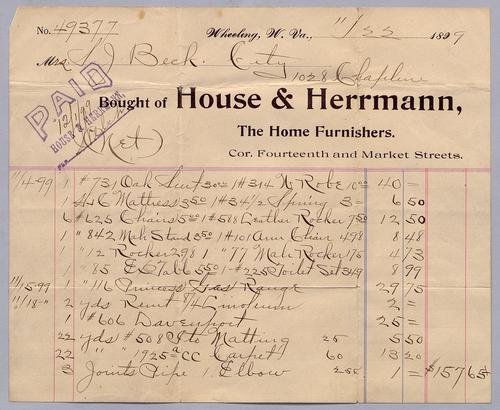 No. 49377 Wheeling, W. Va., 11/22 1899
Mrs. S J Beck. City
1028 Chapline
PAID
HOUSE & HERRMANN
Bought of House & Herrmann,
The Home Furnishers.
(Net)
Cor. Fourteenth and Market Streets.
11/4-99 1 #731 Oak Suit 30 00 1 #314 W Robe 10 00 40 =
1 A & C Mattress 3 50 1 #34/2 Spring 3 = 6 50
6 #625 Chairs 5 00 1 #588 Leather Rocker 7 50 12 50
1 " 842 Mah Stand 3 50 1 #101 Arm Chair 4 98 8 48
1 " 12 Rocker 2 98 1 " 77 Mah Rocker 1 75 4 73
1 " 85 E Table 5 50 1 - #225 Toilet Set 3 49 8 99
11/15-99 1 " 116 Princess Gas Range 29 75
11/18-" 2 yds Remt 8/4 Linoleum 2 =
1 #606 Davenport 25 =
22 yds #508 Matting 25 5 50
22 " " 1725 a CC Carpet 60 13 20
3 Joints Pipe 1 Elbow 25¢ 1 = $157 65